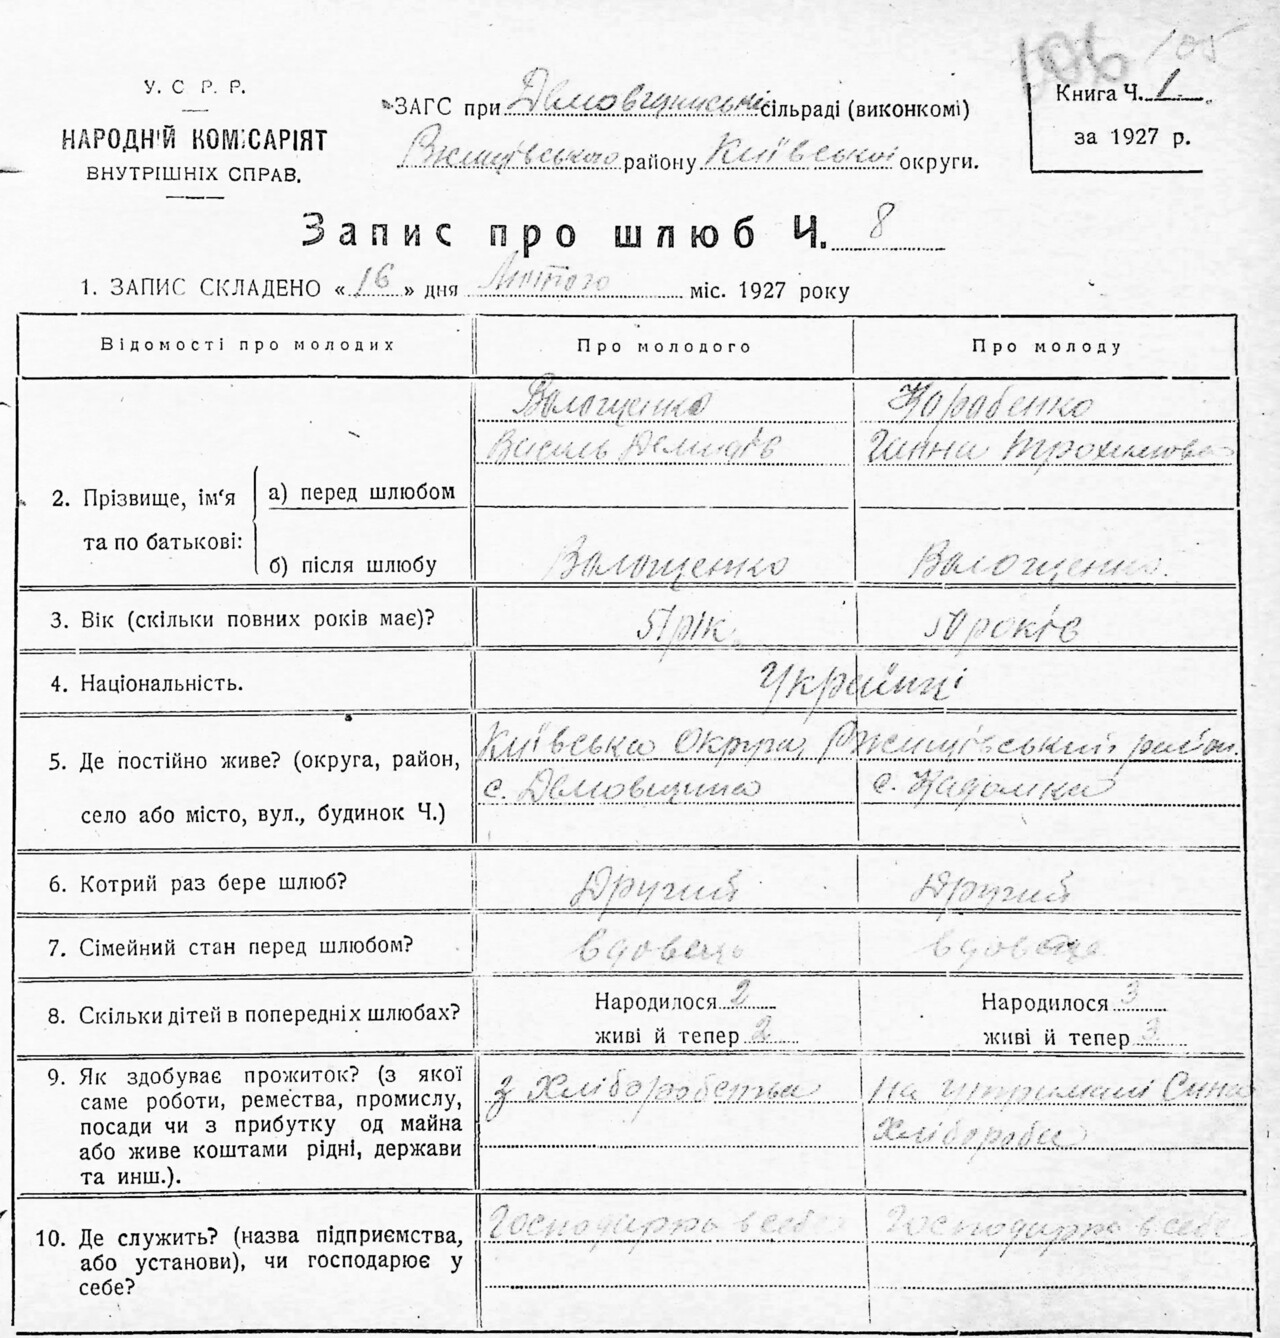 106 105
У. С Р. Р.
НАРОДНІЙ КОМІСАРІЯТ
ВНУТРІШНІХ СПРАВ.
ЗАГС при Демовщинській сільраді (виконкомі)
Ржищівського району Київської округи.
Книга Ч. 1.
за 1927 р.
Запис про шлюб Ч. 8
1. ЗАПИС СКЛАДЕНО «16» дня Лютого міс. 1927 року
Відомості про молодих Про молодого Про молоду
Волощенко Карабенко
Василь Демидів Ганна Трохимова
2. Прізвище, ім'я а) перед шлюбом
та по батькові:
б) після шлюбу Волощенко Волощенко
3. Вік (скільки повних років має)? 51 рік 50 років
4. Національність. Українці
Київська Округа, Ржищівський район.
5. Де постійно живе? (округа, район, с. Демовщина с. Кадомка
село або місто, вул., будинок Ч.)
6. Котрий раз бере шлюб? Другий Другий
7. Сімейний стан перед шлюбом? вдовець вдовица
8. Скільки дітей в попередніх шлюбах? Народилося 2 Народилося 3
живі й тепер 2 живі й тепер 3
9. Як здобуває прожиток? (з якої з Хліборобства на утриманні Сина
саме роботи, ремества, промислу,
посади чи з прибутку од майна Хлібороба
або живе коштами рідні, держави
та инш.).
Господарює в себе Господарює в себе
10. Де служить? (назва підприємства,
або установи), чи господарює у
себе?